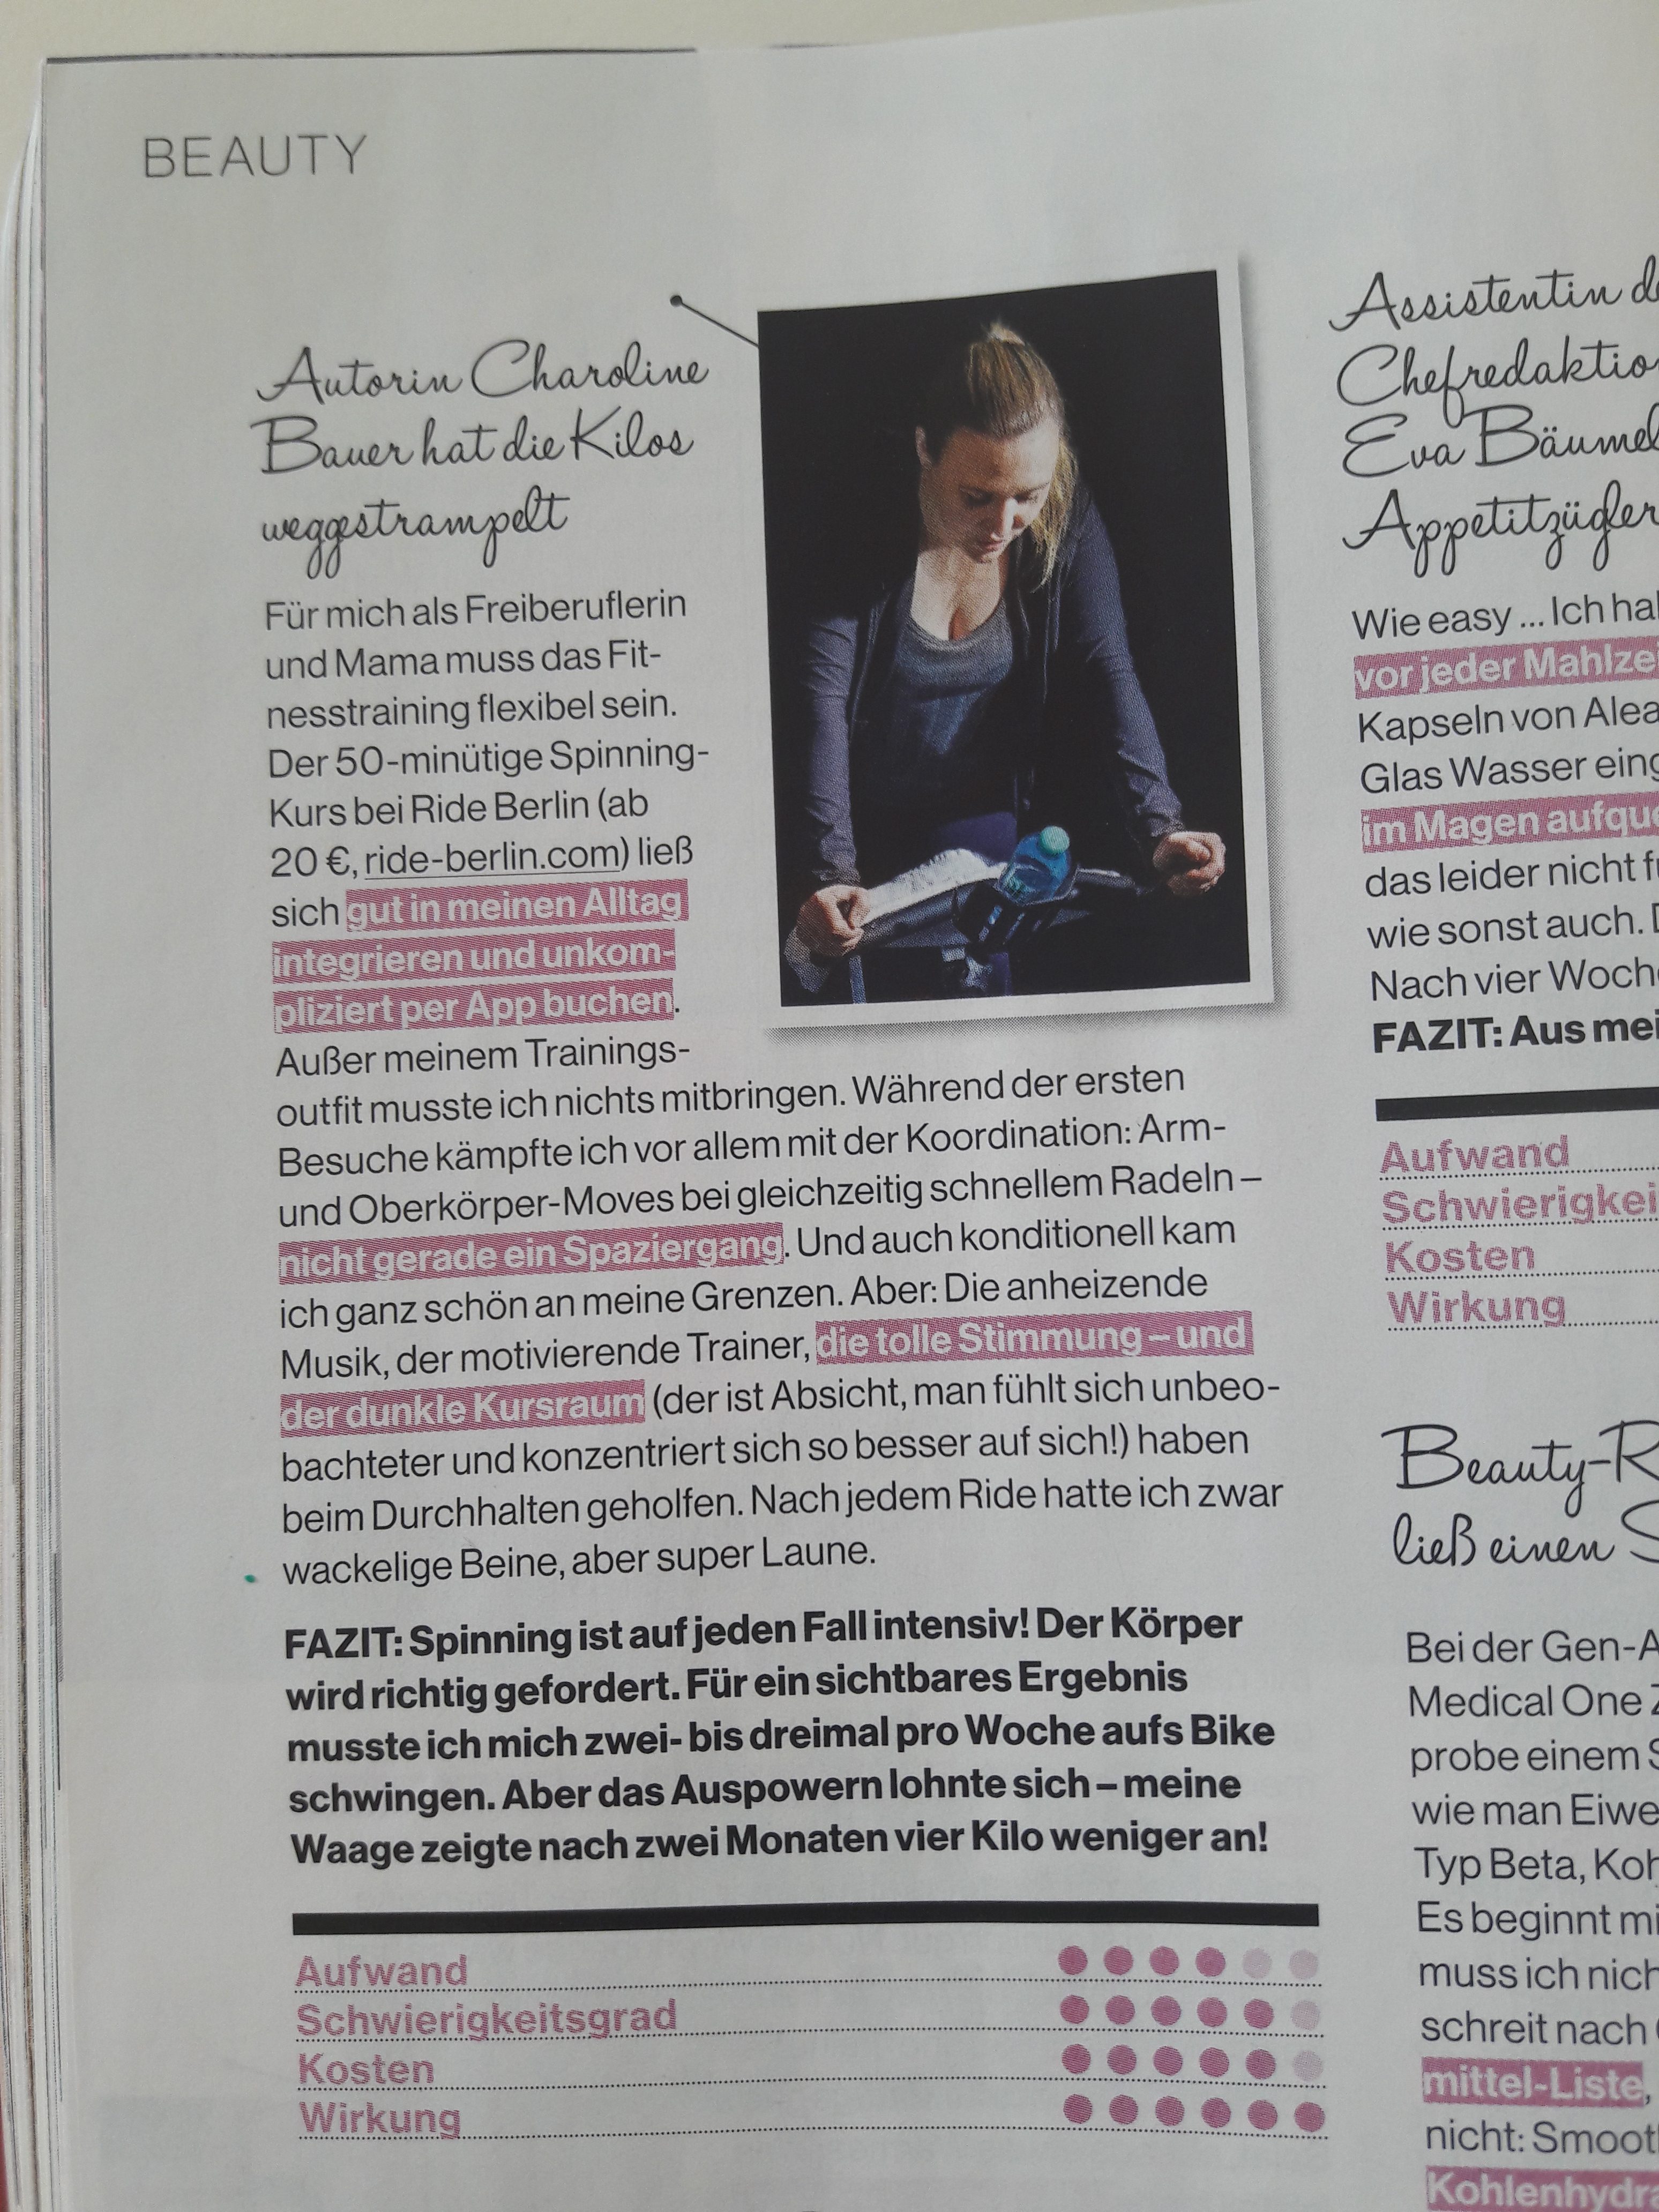 BEAUTY
Autorin Charoline
Bauer hat die Kilos
weggestrampelt
Für mich als Freiberuflerin
und Mama muss das Fit-
nesstraining flexibel sein.
Der 50-minütige Spinning-
Kurs bei Ride Berlin (ab
20 €, ride-berlin.com) ließ
sich gut in meinen Alltag
integrieren und unkom-
pliziert per App buchen.
Außer meinem Trainings-
outfit musste ich nichts mitbringen. Während der ersten
Besuche kämpfte ich vor allem mit der Koordination: Arm-
und Oberkörper-Moves bei gleichzeitig schnellem Radeln –
nicht gerade ein Spaziergang. Und auch konditionell kam
ich ganz schön an meine Grenzen. Aber: Die anheizende
Musik, der motivierende Trainer, die tolle Stimmung – und
der dunkle Kursraum (der ist Absicht, man fühlt sich unbeo-
bachteter und konzentriert sich so besser auf sich!) haben
beim Durchhalten geholfen. Nach jedem Ride hatte ich zwar
wackelige Beine, aber super Laune.
FAZIT: Spinning ist auf jeden Fall intensiv! Der Körper
wird richtig gefordert. Für ein sichtbares Ergebnis
musste ich mich zwei- bis dreimal pro Woche aufs Bike
schwingen. Aber das Auspowern lohnte sich – meine
Waage zeigte nach zwei Monaten vier Kilo weniger an!
Aufwand
Schwierigkeitsgrad
Kosten
Wirkung
Assistentin
Eva
Appetitzügler
Wie easy ... Ich
vor jeder
Kapseln von
Glas Wasser
im Magen
das leider nicht
wie sonst auch.
Nach vier
FAZIT: Aus
Aufwand
Kosten
Wirkung
Beauty-
ließ einen
Bei der Gen-
Medical One
probe einem
wie man
Typ Beta,
Es beginnt
muss ich
schreit nach
mittel-Liste,
nicht: